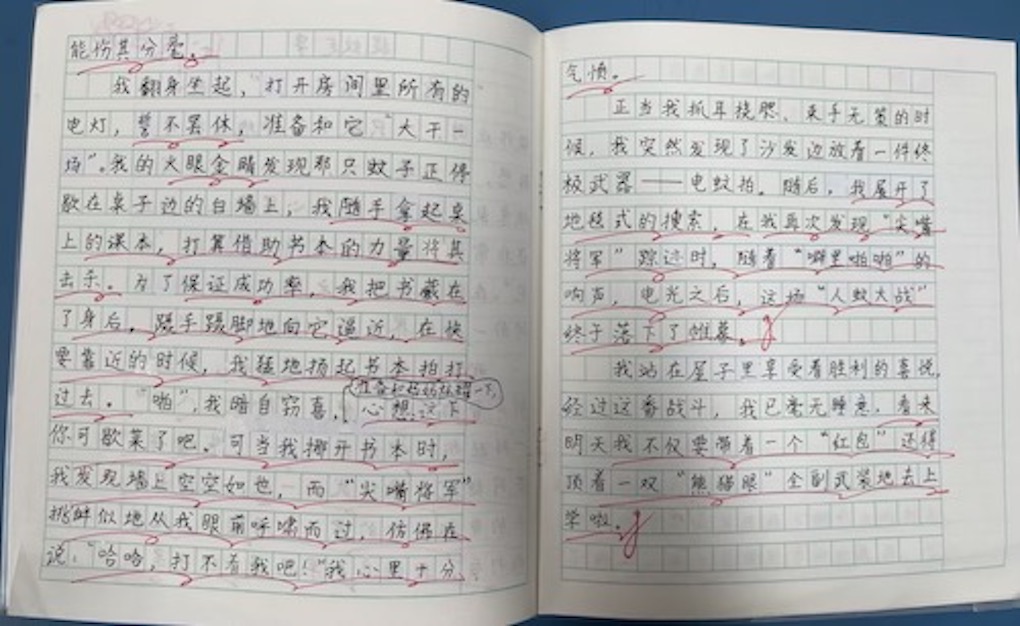 能伤其分毫。
我翻身坐起，打开房间里所有的
电灯，誓不罢休，准备和它“大干一
场”。我的火眼金睛发现那只蚊子正停
歇在桌子边的白墙上，我随手拿起桌
上的课本，打算借助书本的力量将其
去手。为了保证成功率，我把书藏在
了身后，蹑手蹑脚地向它逼近，在快
要靠近的时候，我猛地扬起书本拍打
过去。“啪”，我暗自窃喜，心想：这下
你可歇菜了吧。可当我挪开书本时，
我发现墙上空空如也，而“尖嘴将军”
挑衅似地从我眼前呼啸而过，仿佛在
说：“哈哈，打不着我吧！”我心里十分
气愤。
正当我抓耳挠腮、束手无策的时
候，我突然发现了沙发边放着一件终
极武器——电蚊拍。随后，我展开了
地毯式的搜索，在我再次发现“尖嘴
将军”踪迹时，随着“噼里啪啪”的
响声，电光之后，这场“人蚊大战”
终于落下了帷幕。
我站在屋子里享受着胜利的喜悦，
经过这番战斗，我已毫无睡意，看来
明天我不仅要带着一个“红包”还得
顶着一双“熊猫眼”全副武装地去上
学啦。